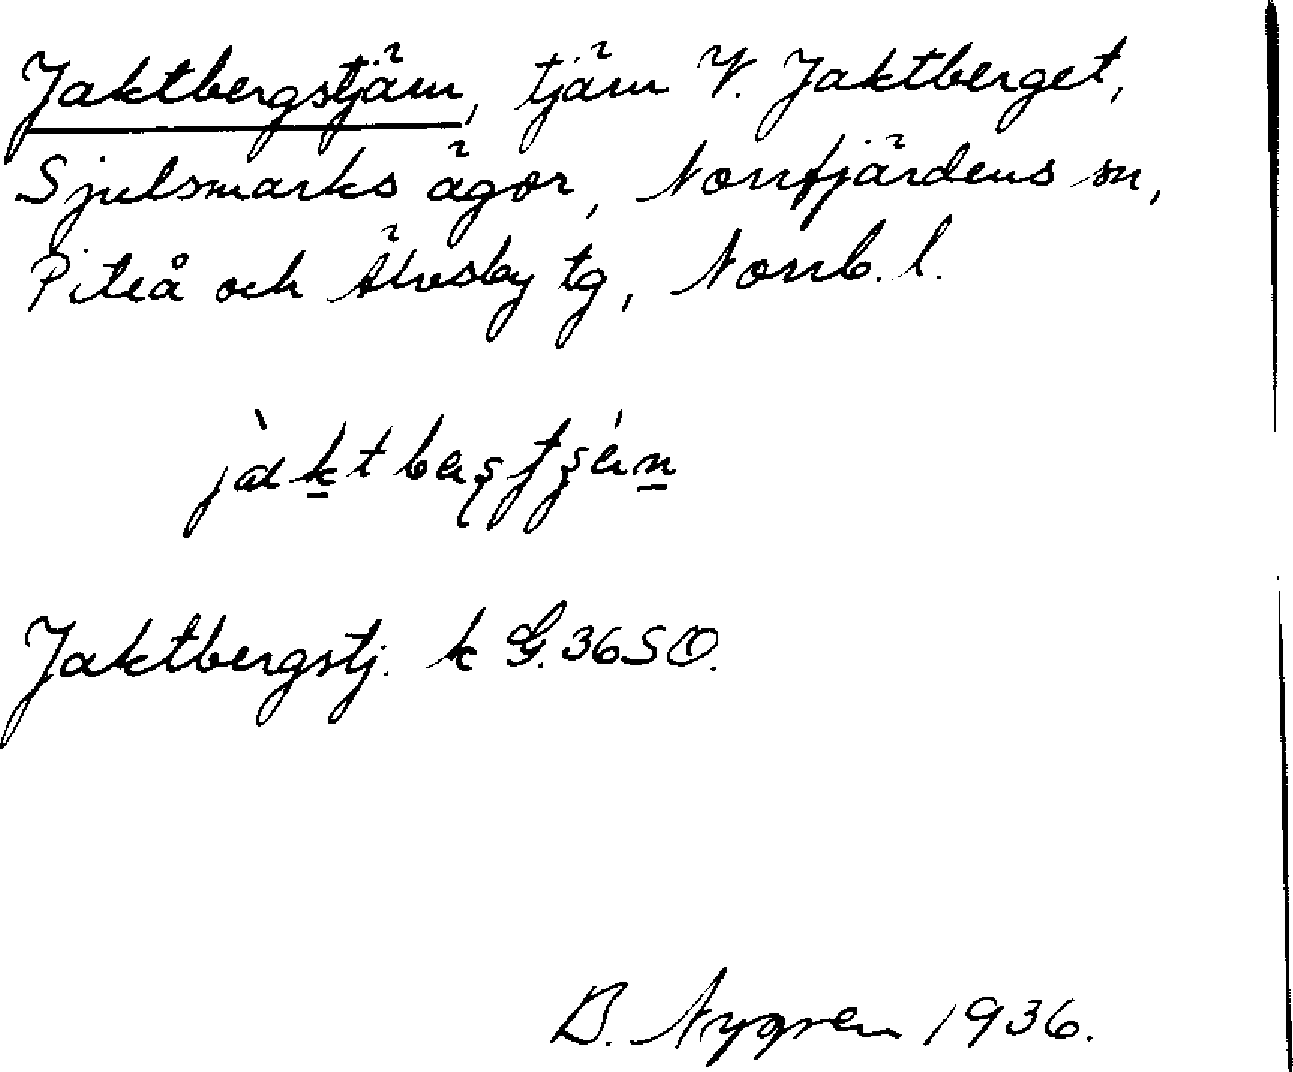 Jaktbergstjärn, tjärn V. Jaktberget,
Sjulsmarks ägor, Norrfjärdens sn,
Piteå och Älvsby tg, Norrb. l.
Jaktbergstj. k G. 36 SO.
B. Nygren 1936.